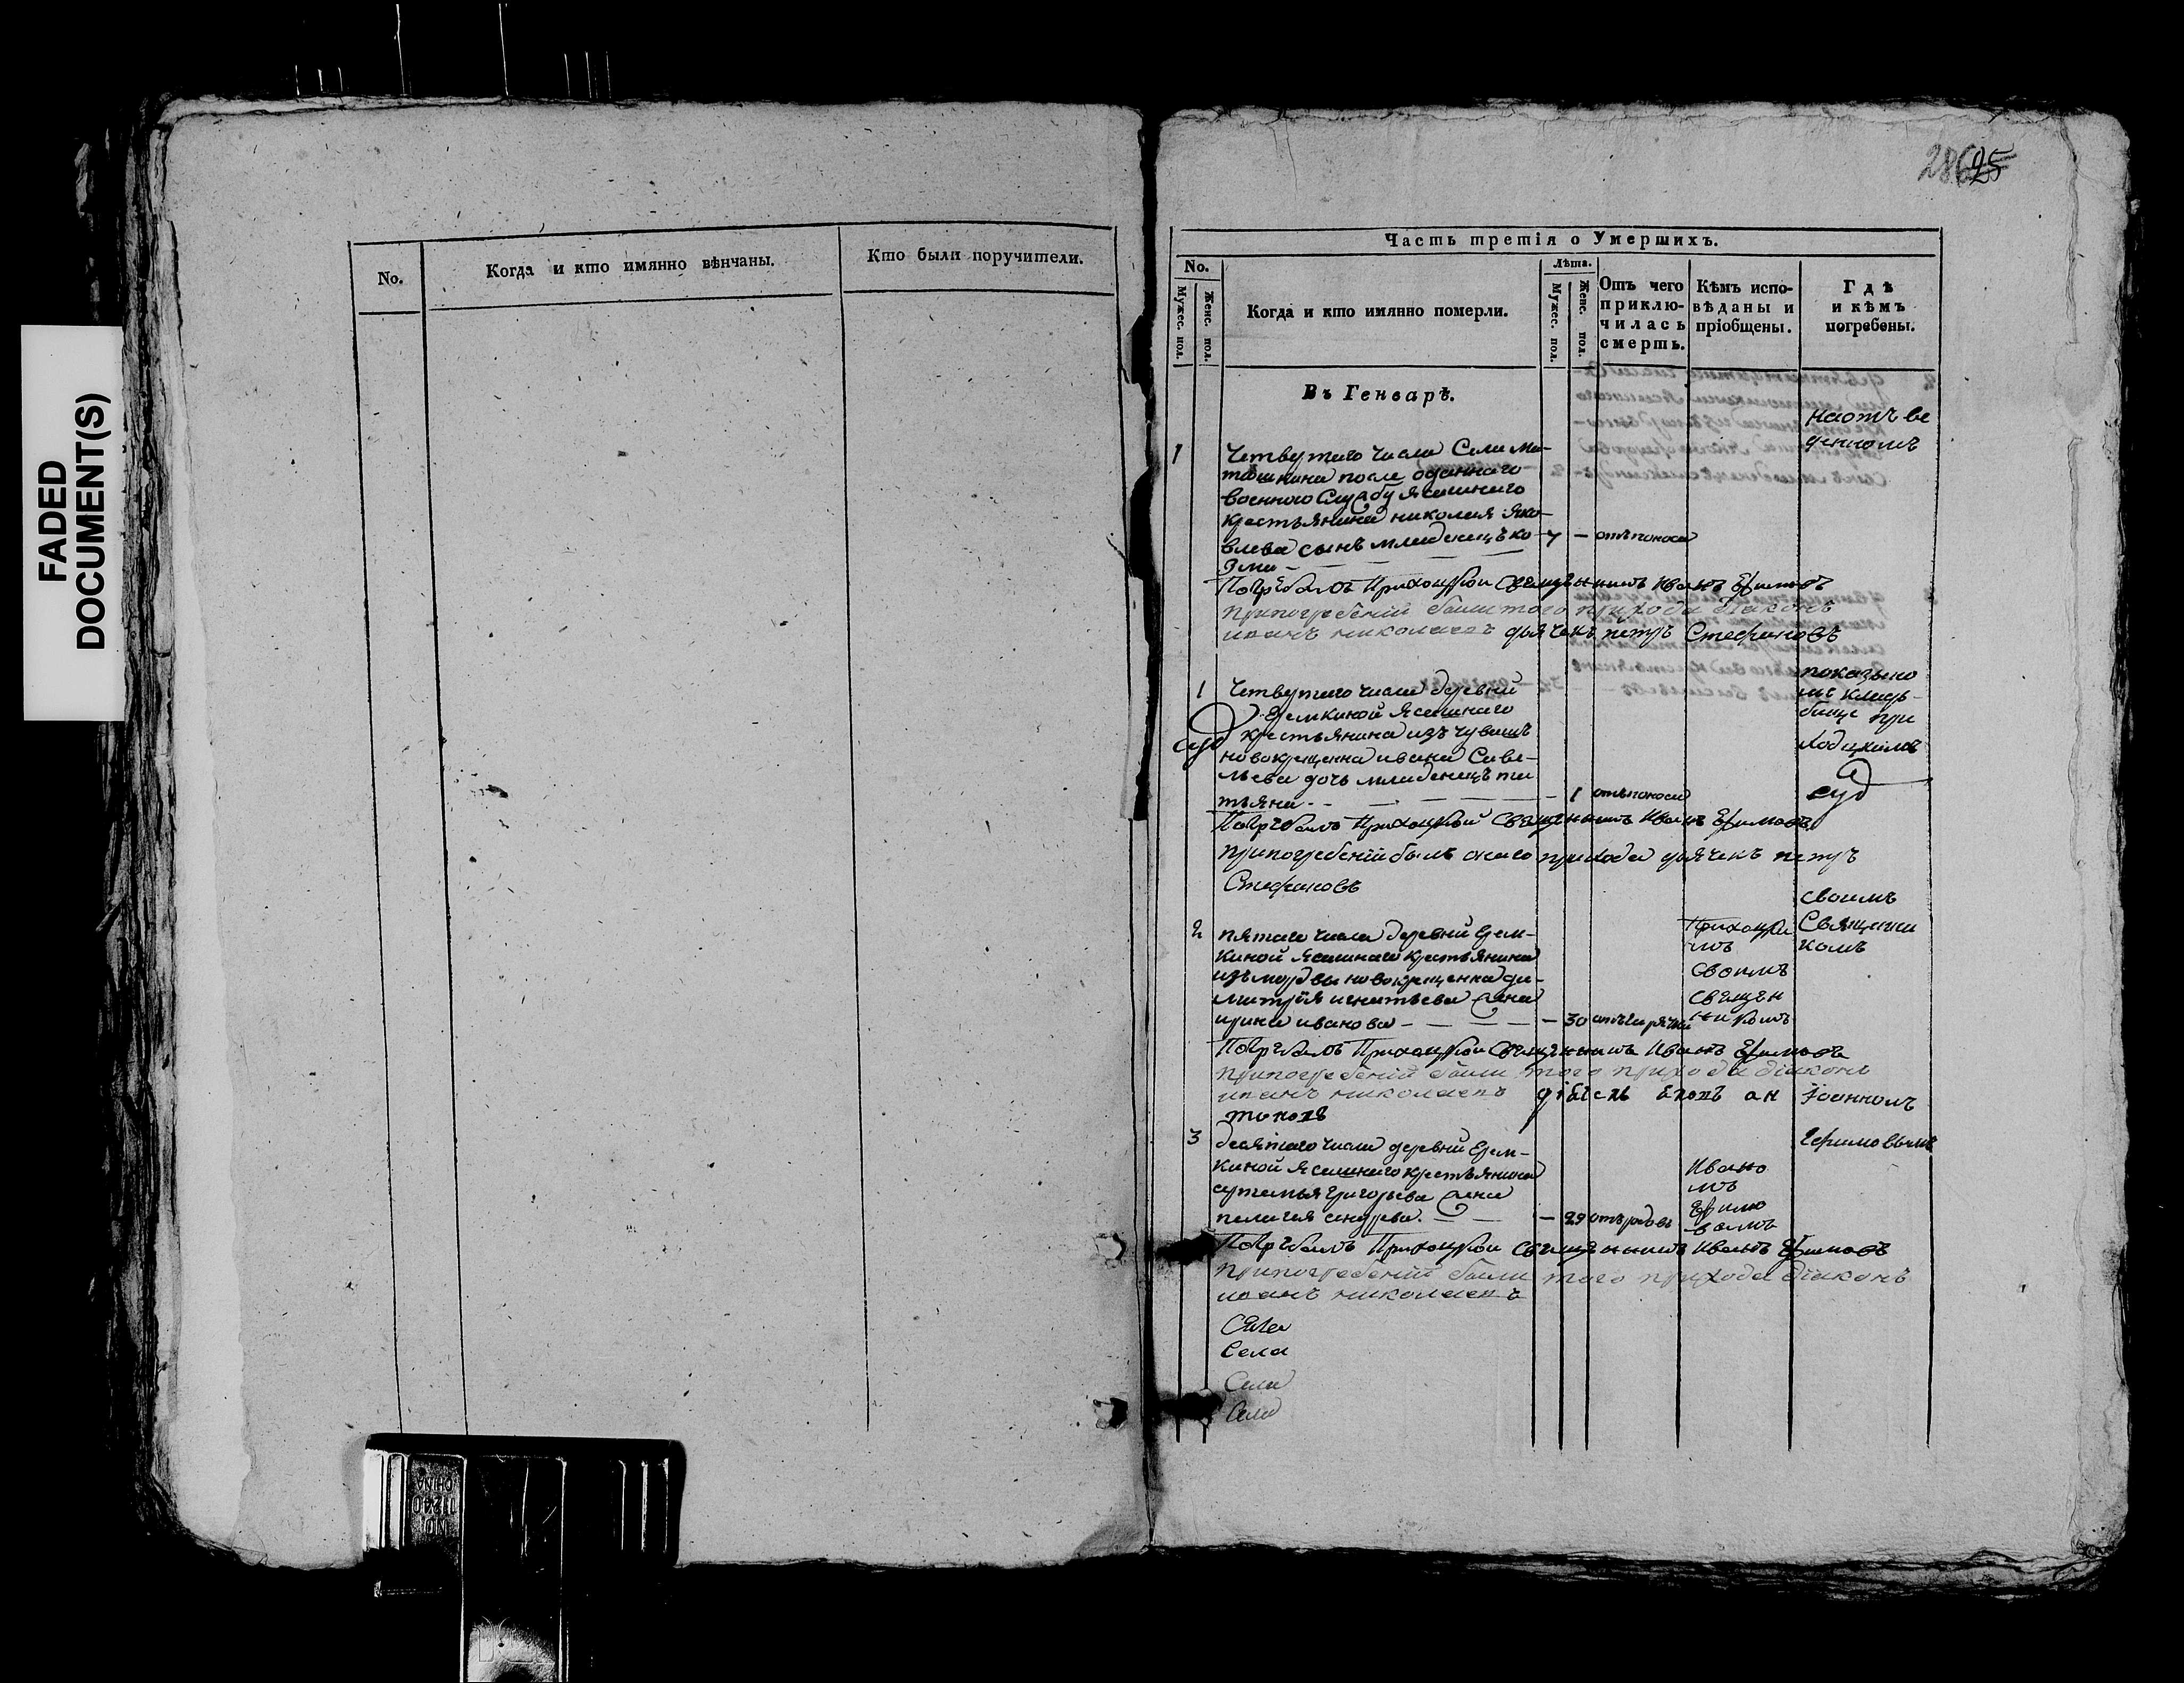 FADED
DOCUMENT(S)
No.
Когда и кто имянно вѣнчаны.
Кто были поручители.
286 25
Часть третія о Умершихъ.
No.
Мужес. пол.
Женс. пол.
Когда и кто имянно померли.
Лѣта.
Мужес. пол.
Женс. пол.
Отъ чего
приклю-
чилась
смерть.
Кѣмъ испо-
вѣданы и
пріобщены.
Гдѣ
и кѣмъ
погребены.
Въ Генварѣ.
наотъве
денномъ
1 Четвертаго числа Села Ма-
тюшкина после отданнаго
военного Службу ясашнаго
крестьянина николая Яко-
влева сынъ младенецъ ко 7 - отъ поноса
зма -
Погрѣбалъ Приходцкои Священникъ Иванъ Ефимовъ
припогребеніи были того прихода діаконъ
иванъ николаевъ дьячекъ петръ Стефановъ
1 Четвертаго числа деревни
Еремкиной Ясашнаго
крестьянина изъ чувашъ
новокрещенна ивана Саве-
льева дочь младенецъ та
тьяна - - 1 отъ поноса
показано
мъ кладь-
бище при
ходцкимъ
Погрѣбалъ Приходцкои Священникъ Иванъ Ефимовъ
припогребеніи былъ онаго прихода дьячекъ петръ
Стефановъ
2 пятаго числа деревни Ерем-
киной Ясашнаго крестьянина
изъ мордвы новокрещенна ди-
митрія игнатьева жена
ирина иванова - - 30 отъ горячки
Приходцки
мъ
своимъ
священ
никомъ
своимъ
Священни
комъ
Погрѣбалъ Приходцкои Священникъ Иванъ Ефимовъ
припогребеніи были того прихода діаконъ
иванъ николаевъ
Іоанномъ
3 десятаго числа деревни Ерем-
киной Ясашнаго крестьянина
Григорьева жена
пелагея - 29 отъ родовъ
Ивано
мъ
Ефимо
вымъ
Ефимовымъ
Погрѣбалъ Приходцкои Священникъ Иванъ Ефимовъ
припогребеніи были того прихода діаконъ
иванъ николаевъ
Села
Села
Села
Села